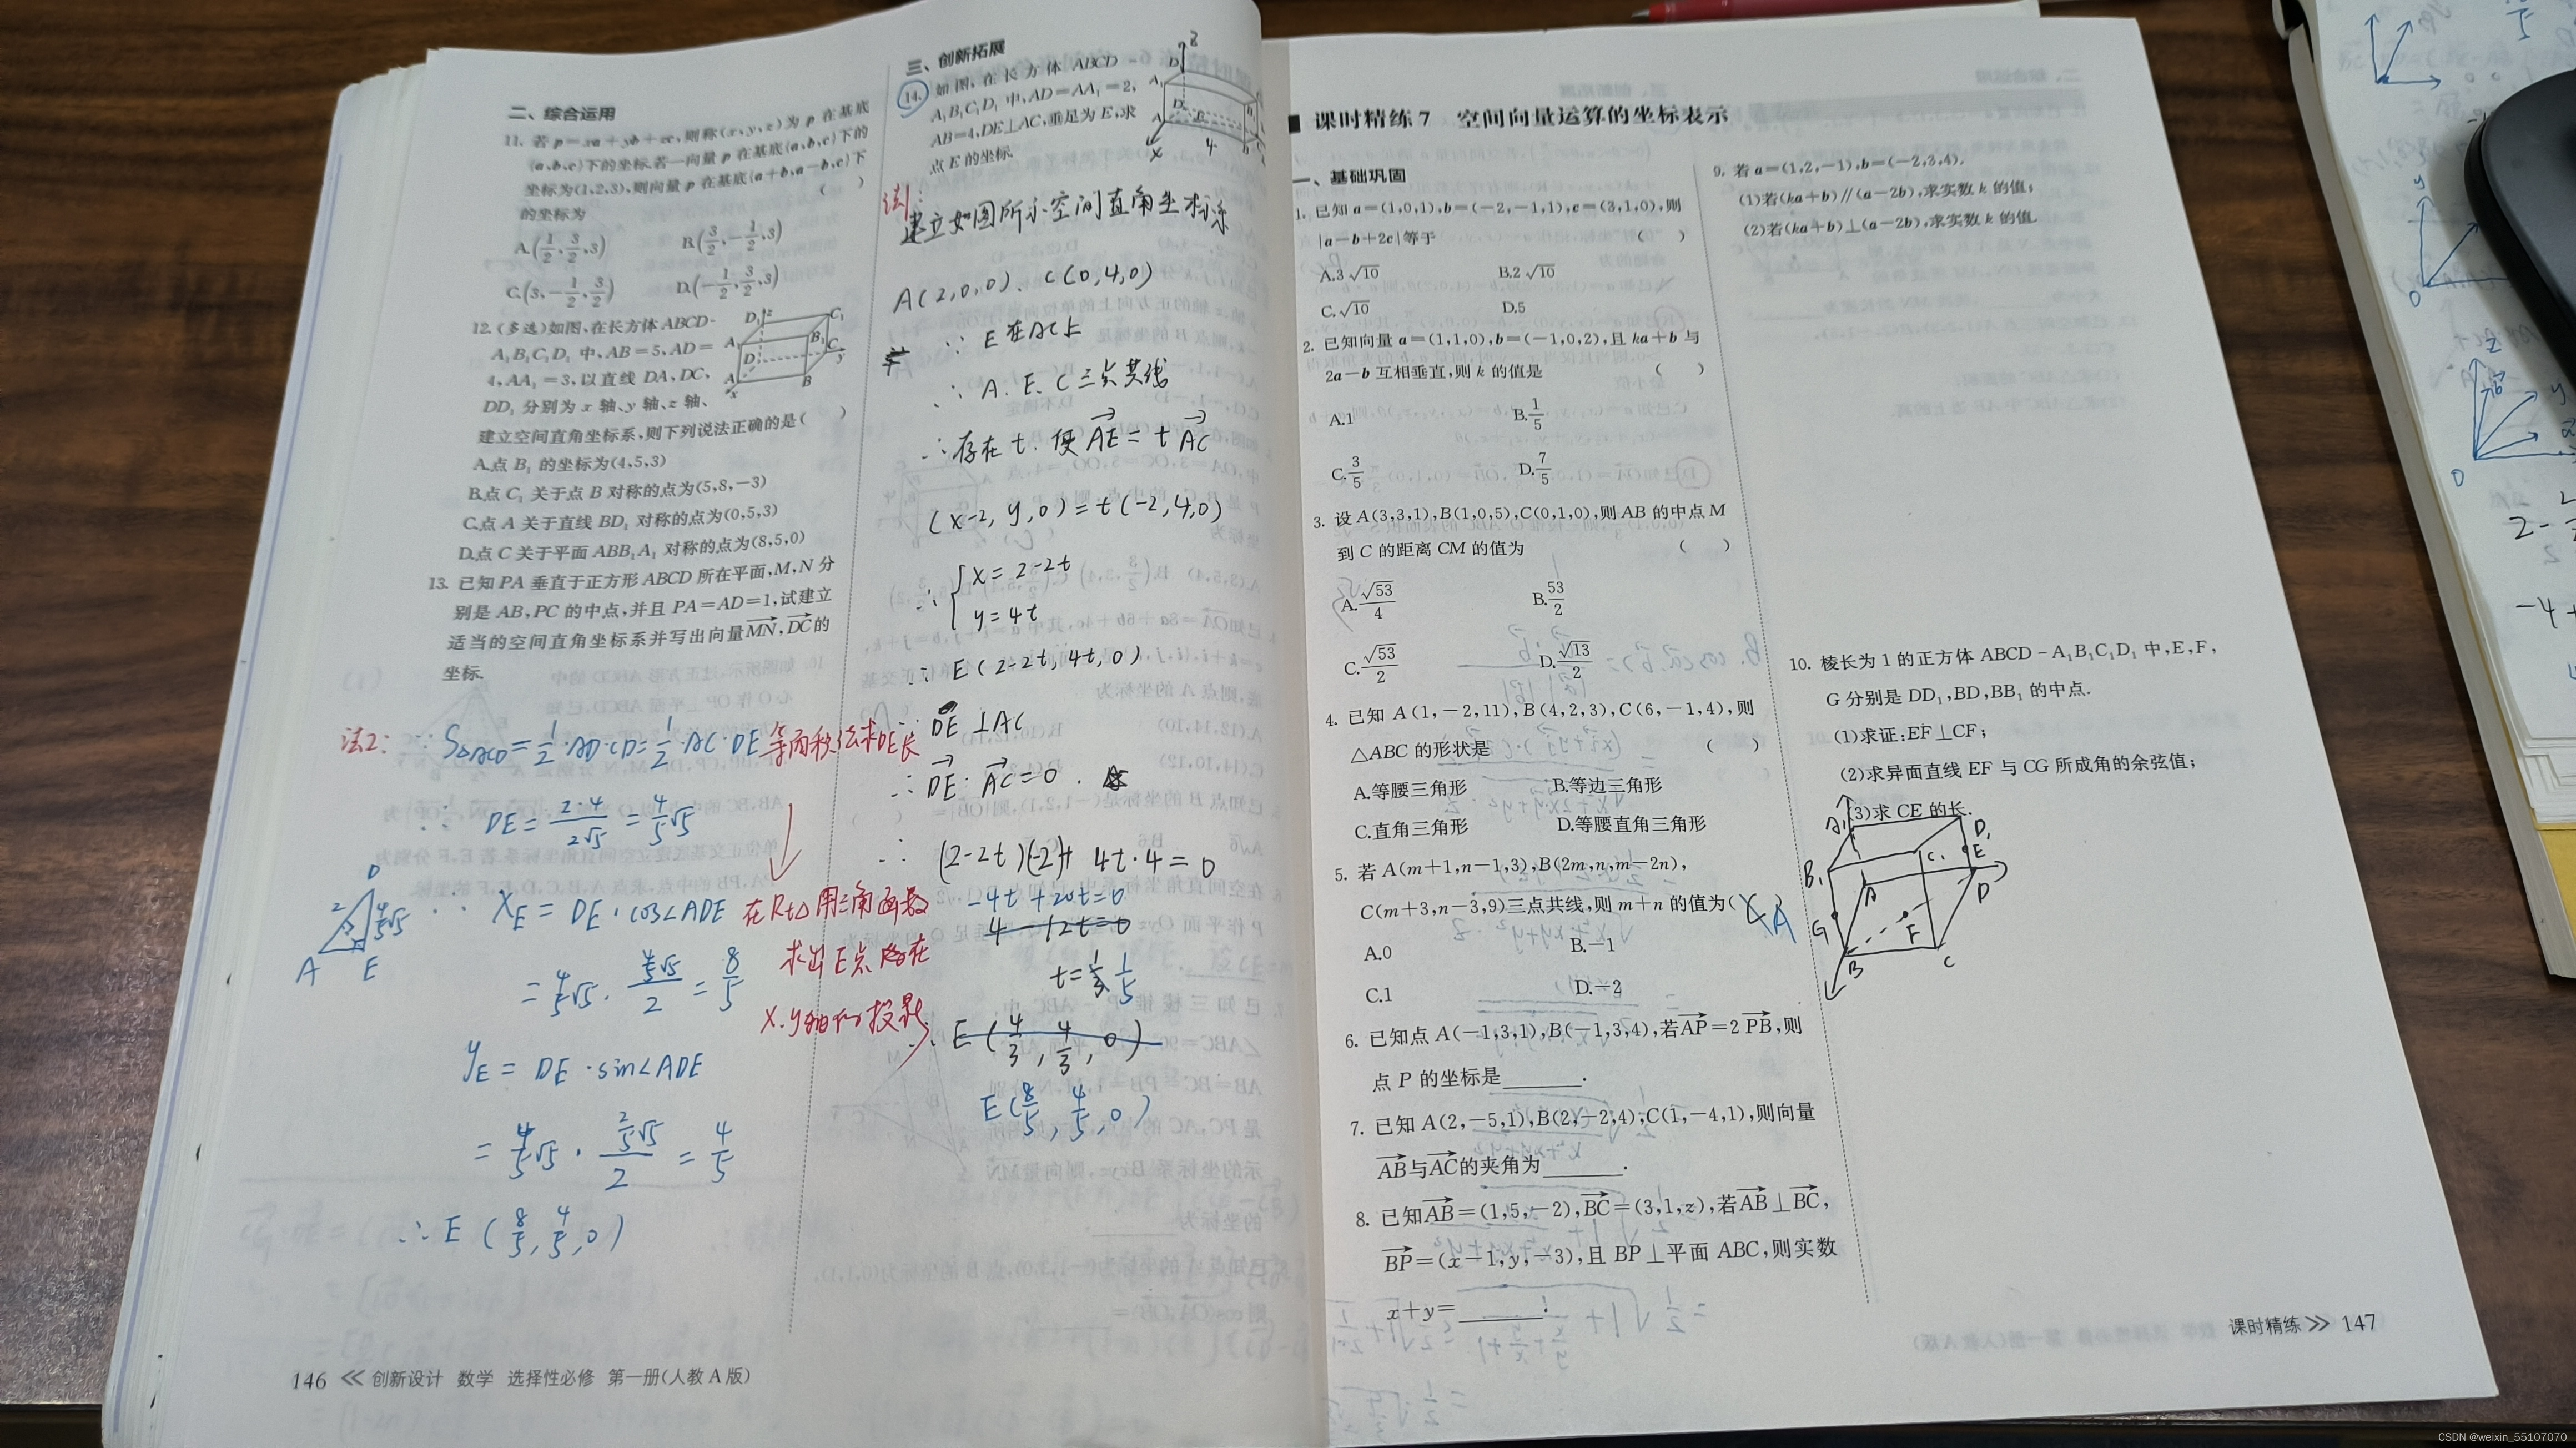 二、综合运用
11. 若 p=xa+yb+zc,则称(x,y,z)为 p 在基底
{a,b,c}下的坐标.若一向量 p 在基底{a,b,c}下的
坐标为(1,2,3),则向量 p 在基底{a+b,a-b,c}下
的坐标为 ( )
A.(1/2,3/2,3) B.(3/2,-1/2,3)
C.(3,-1/2,3/2) D.(-1/2,3/2,3)
12. (多选)如图,在长方体 ABCD-
A₁B₁C₁D₁ 中,AB=5,AD=
4,AA₁=3,以直线 DA,DC,
DD₁ 分别为 x 轴、y 轴、z 轴,
建立空间直角坐标系,则下列说法正确的是( )
A.点 B₁ 的坐标为(4,5,3)
B.点 C₁ 关于点 B 对称的点为(5,8,-3)
C.点 A 关于直线 BD₁ 对称的点为(0,5,3)
D.点 C 关于平面 ABB₁A₁ 对称的点为(8,5,0)
13. 已知 PA 垂直于正方形 ABCD 所在平面,M,N 分
别是 AB,PC 的中点,并且 PA=AD=1,试建立
适当的空间直角坐标系并写出向量MN,DC的
坐标.
法2: ∵ S△ACD=1/2·AD·CD=1/2·AC·DE 等面积法求DE长
∴ DE=2·4/2√5=4/5√5
∴ xE = DE·cos∠ADE 在Rt△用三角函数
求出E点在
x.y轴的投影
=4/5√5·(4/5√5)/2=8/5
yE = DE·sin∠ADE
=4/5√5·(2/5√5)/2=4/5
∴ E(8/5,4/5,0)
D
2
4/5√5
A E
146 ≪ 创新设计 数学 选择性必修 第一册(人教 A 版)
三、创新拓展
14. 如图,在长方体 ABCD-
A₁B₁C₁D₁ 中,AD=AA₁=2,
AB=4,DE⊥AC,垂足为 E,求
点 E 的坐标.
法1:
建立如图所示空间直角坐标系
A(2,0,0)、C(0,4,0)
∵ E在AC上
∴ A、E、C三点共线
∴存在t.使AE=tAC
(x-2,y,0)=t(-2,4,0)
∴ {x=2-2t
y=4t
∴ E(2-2t,4t,0)
∵ DE⊥AC
∴ DE·AC=0.
∴ (2-2t)(-2)+4t·4=0
-4t+20t=0
4-12t=0
t=1/3 1/5
∴ E(4/3,4/3,0)
E(8/5,4/5,0)
课时精练 7 空间向量运算的坐标表示
一、基础巩固
1. 已知 a=(1,0,1),b=(-2,-1,1),c=(3,1,0),则
|a-b+2c|等于 ( )
A.3√10 B.2√10
C.√10 D.5
2. 已知向量 a=(1,1,0),b=(-1,0,2),且 ka+b 与
2a-b 互相垂直,则 k 的值是 ( )
A.1 B.1/5
C.3/5 D.7/5
3. 设 A(3,3,1),B(1,0,5),C(0,1,0),则 AB 的中点 M
到 C 的距离 CM 的值为 ( )
A.√53/4 B.53/2
C.√53/2 D.√13/2
4. 已知 A(1,-2,11),B(4,2,3),C(6,-1,4),则
△ABC 的形状是 ( )
A.等腰三角形 B.等边三角形
C.直角三角形 D.等腰直角三角形
5. 若 A(m+1,n-1,3),B(2m,n,m-2n),
C(m+3,n-3,9)三点共线,则 m+n 的值为( )
A.0 B.-1
C.1 D.-2
6. 已知点 A(-1,3,1),B(-1,3,4),若AP=2PB,则
点 P 的坐标是______.
7. 已知 A(2,-5,1),B(2,-2,4),C(1,-4,1),则向量
AB与AC的夹角为______.
8. 已知AB=(1,5,-2),BC=(3,1,z),若AB⊥BC,
BP=(x-1,y,-3),且 BP⊥平面 ABC,则实数
x+y=______.
9. 若 a=(1,2,-1),b=(-2,3,4).
(1)若(ka+b)∥(a-2b),求实数 k 的值;
(2)若(ka+b)⊥(a-2b),求实数 k 的值.
10. 棱长为 1 的正方体 ABCD-A₁B₁C₁D₁ 中,E,F,
G 分别是 DD₁,BD,BB₁ 的中点.
(1)求证:EF⊥CF;
(2)求异面直线 EF 与 CG 所成角的余弦值;
(3)求 CE 的长.
A₁ D₁
B₁ C₁ E
A D
G F
B C
课时精练 ≫ 147
CSDN @weixin_55107070